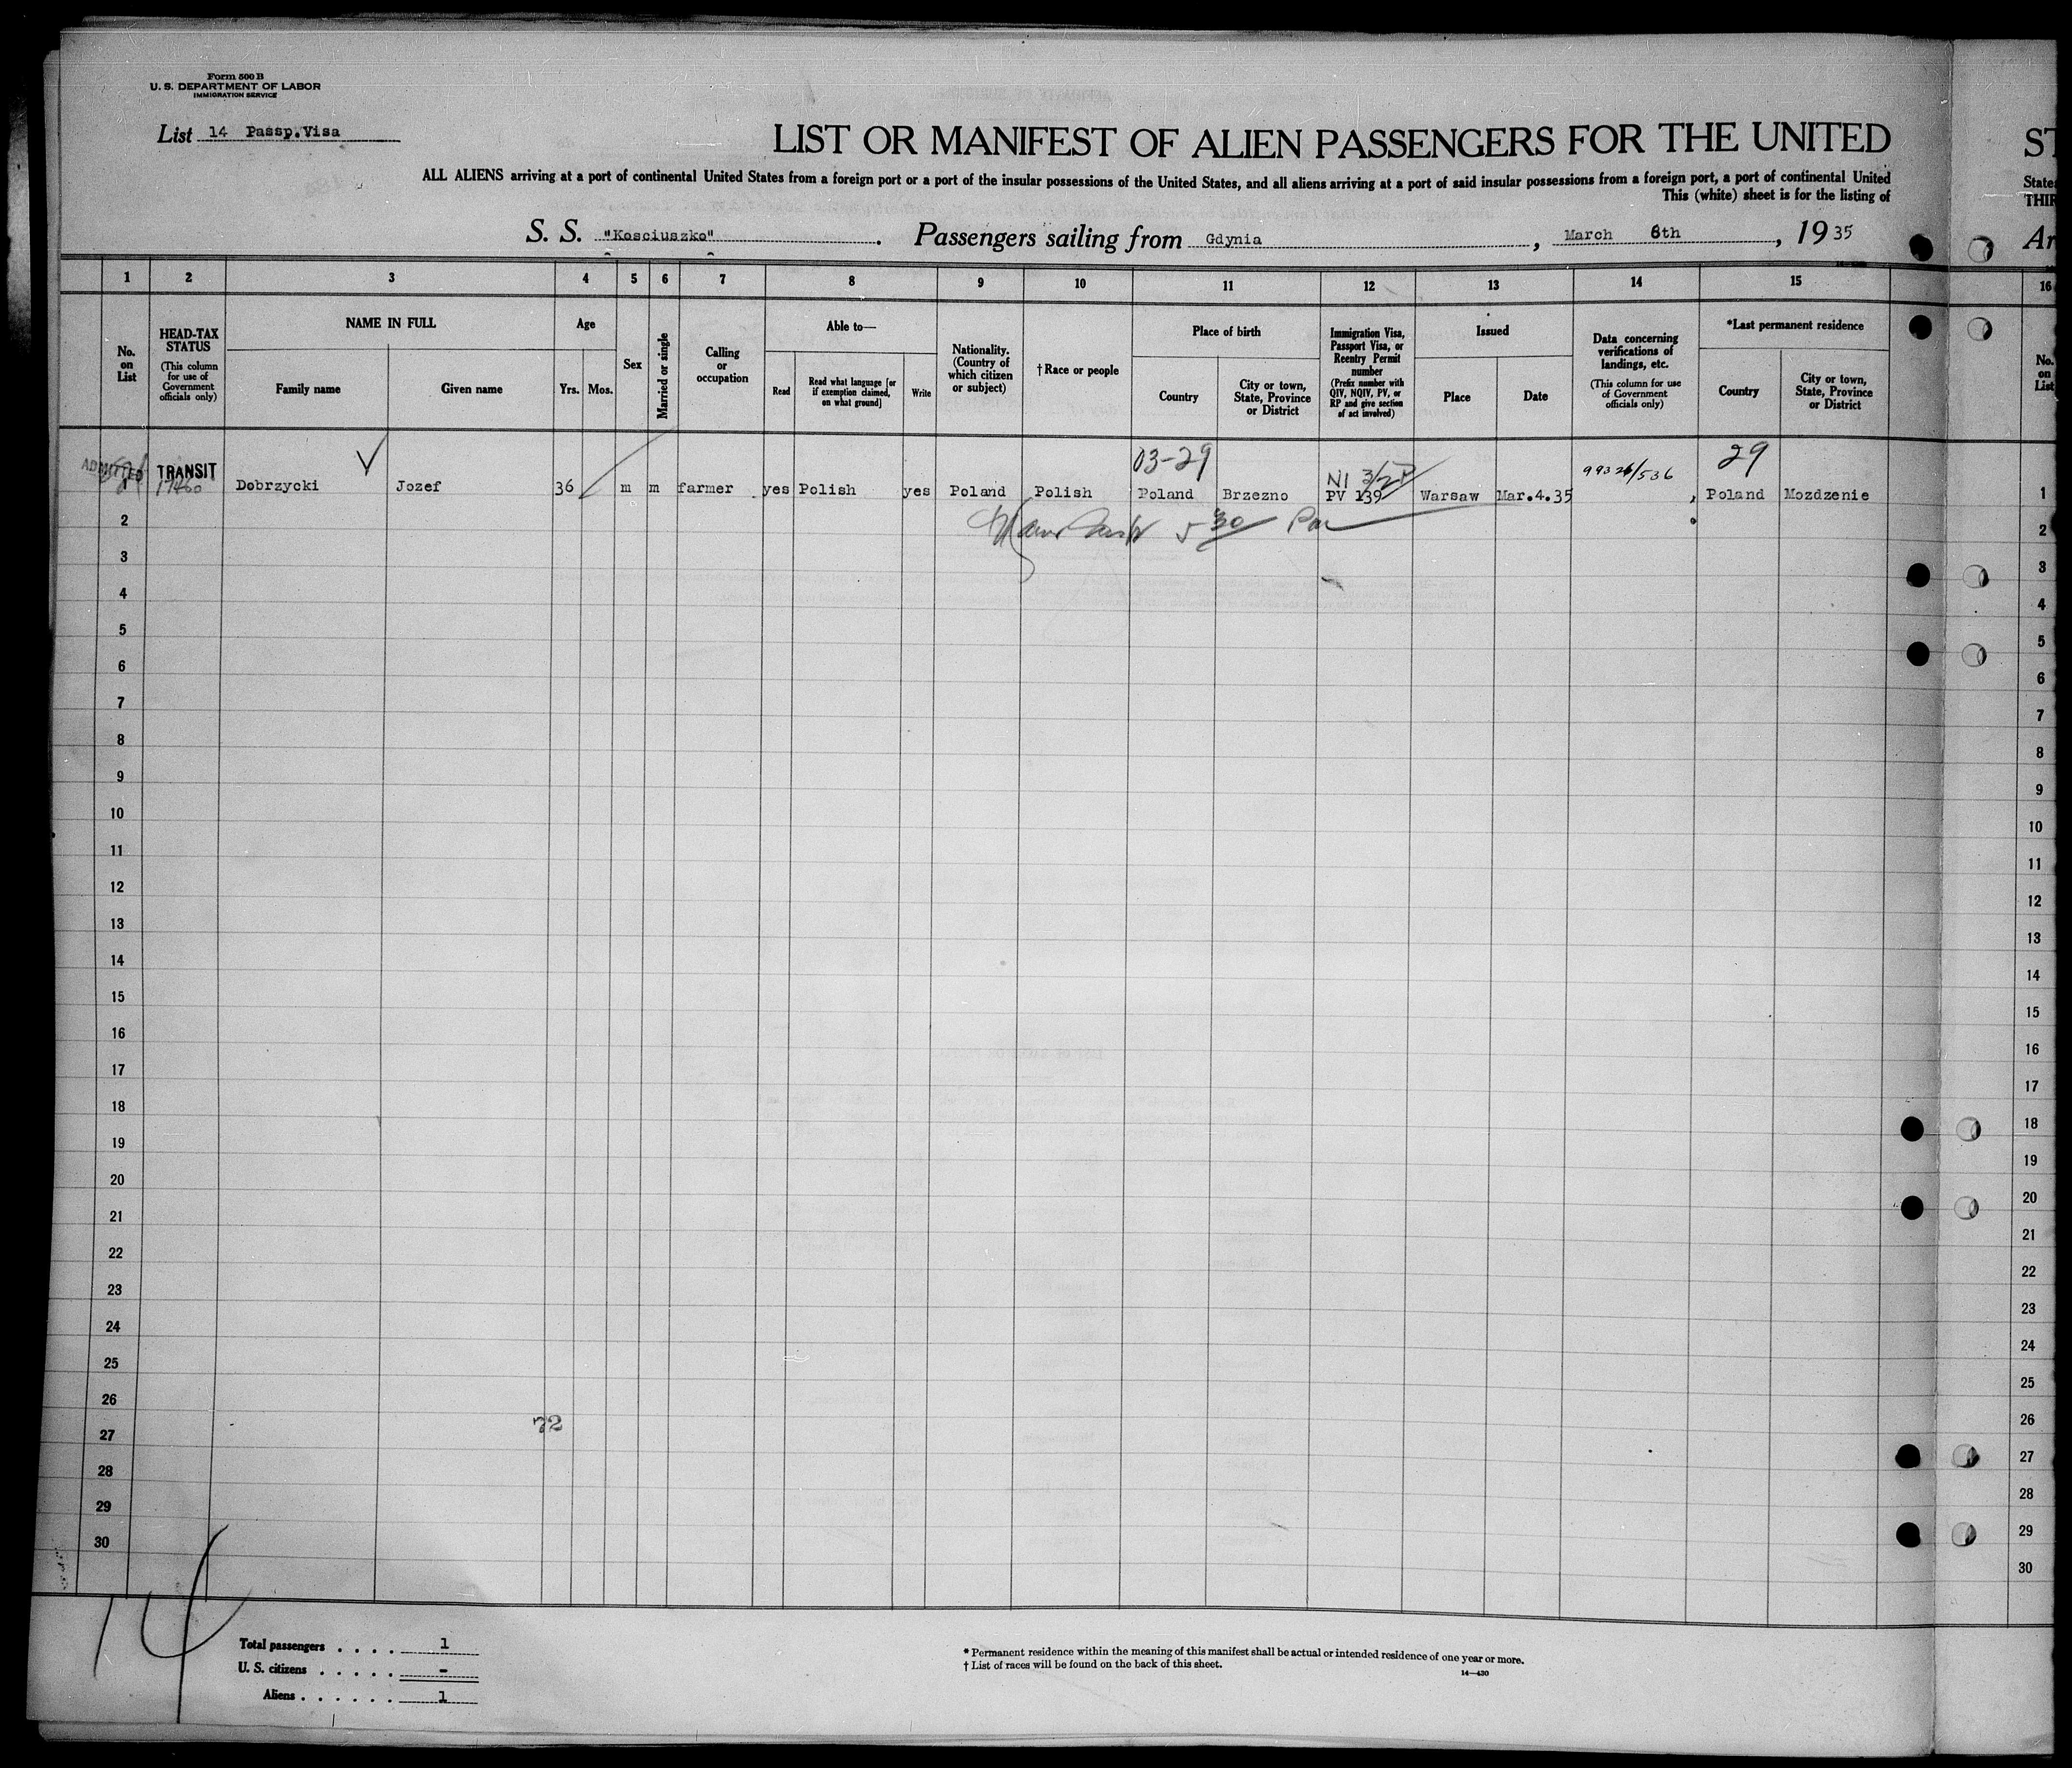 Form 500 B
U. S. DEPARTMENT OF LABOR
IMMIGRATION SERVICE
List 14 Passp.Visa
LIST OR MANIFEST OF ALIEN PASSENGERS FOR THE UNITED
ST
ALL ALIENS arriving at a port of continental United States from a foreign port or a port of the insular possessions of the United States, and all aliens arriving at a port of said insular possessions from a foreign port, a port of continental United
States
This (white) sheet is for the listing of
THIR
S. S. "Kosciuszko". Passengers sailing from Gdynia, March 6th, 1935
Ar
1 2 3 4 5 6 7 8 9 10 11 12 13 14 15 16
No. on List
HEAD-TAX STATUS
(This column for use of Government officials only)
NAME IN FULL
Family name
Given name
Age
Yrs. Mos.
Sex
Married or single
Calling or occupation
Able to—
Read
Read what language [or if exemption claimed, on what ground]
Write
Nationality. (Country of which citizen or subject)
† Race or people
Place of birth
Country
City or town, State, Province or District
Immigration Visa, Passport Visa, or Reentry Permit number
(Prefix number with QIV, NQIV, PV, or RP and give section of act involved)
Issued
Place
Date
Data concerning verifications of landings, etc.
(This column for use of Government officials only)
*Last permanent residence
Country
City or town, State, Province or District
No. on List
03-29
29
ADMITTED TRANSIT
99326/536
1 Dobrzycki Jozef 36 m m farmer yes Polish yes Poland Polish Poland Brzezno PV 139 Warsaw Mar.4.35 Poland Mozdzenie 1
2 2
3 3
4 4
5 5
6 6
7 7
8 8
9 9
10 10
11 11
12 12
13 13
14 14
15 15
16 16
17 17
18 18
19 19
20 20
21 21
22 22
23 23
24 24
25 25
26 26
72
27 27
28 28
29 29
30 30
14
Total passengers . . . . 1
U. S. citizens . . . . . -
Aliens . . . . . . 1
* Permanent residence within the meaning of this manifest shall be actual or intended residence of one year or more.
† List of races will be found on the back of this sheet.
14—430